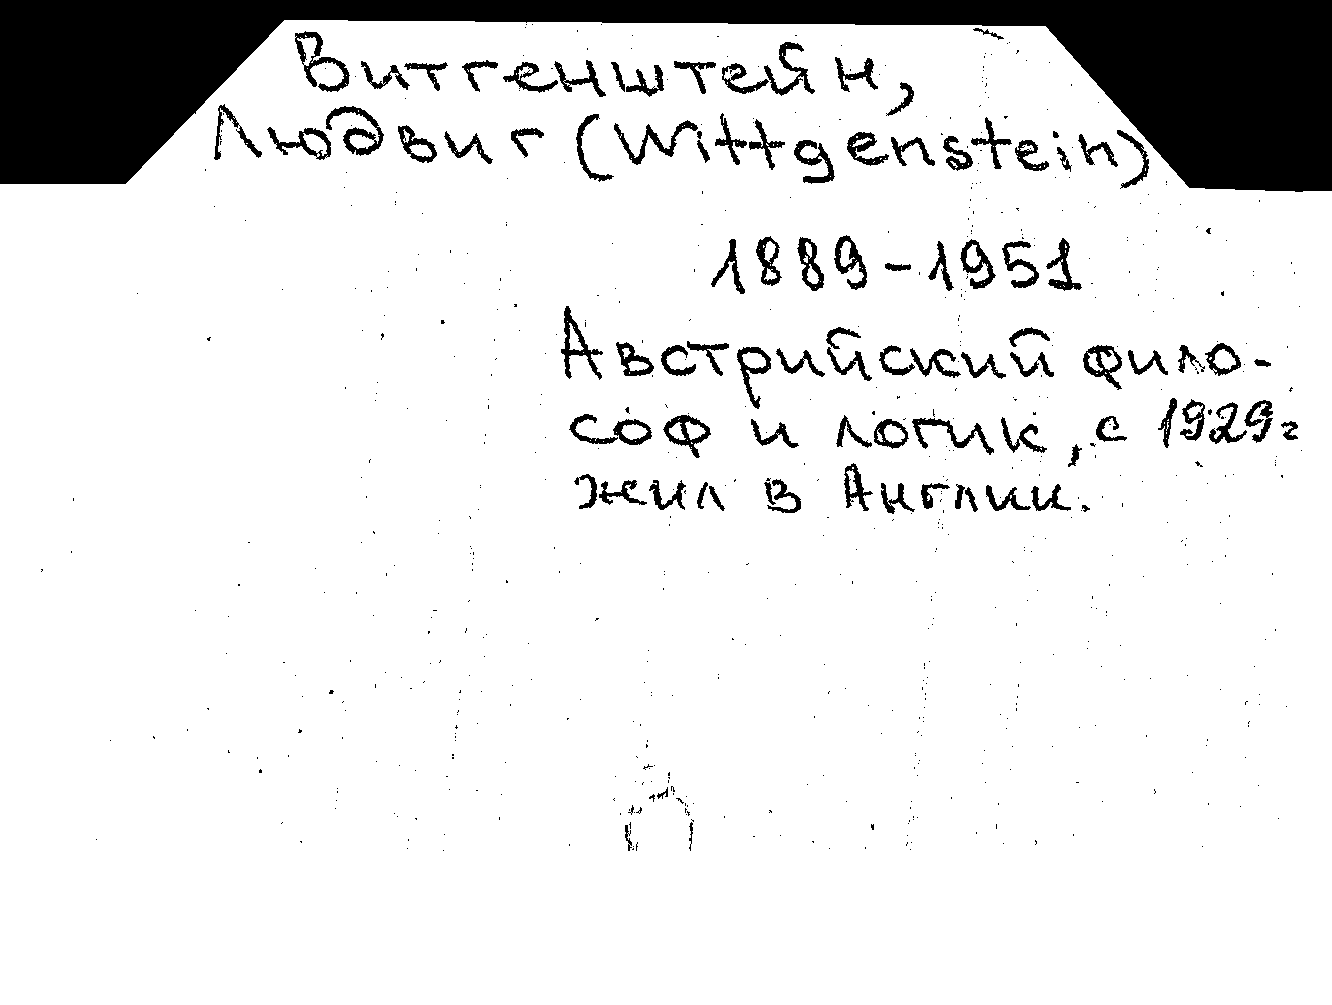 Витгенштейн,
Людвиг (Wittgenstein)
1889-1951
Австрийский фило-
соф и логик, с 1929г
жил в Англии.